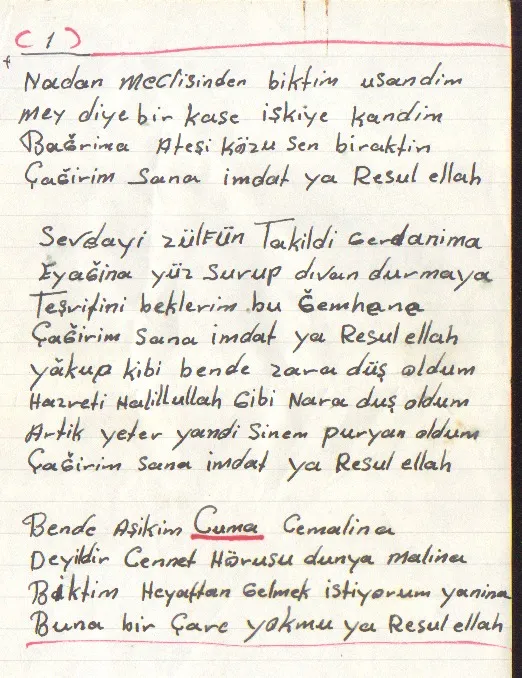 ( 1 )
Nadan meclisinden biktim usandim
mey diye bir kase işkiye kandim
Bağrima Ateşi közu sen biraktin
Çağirim Sana imdat ya Resul ellah
Sevdayi zülfün Takildi Gerdanima
Eyağina yüz Surup dıvan durmaya
Teşrifini beklerim bu Ğemhana
Çağirim Sana imdat ya Resul ellah
yâkup kibi bende zara düş oldum
Hazreti Halillullah Gibi Nara duş oldum
Artik yeter yandi Sinem puryan oldum
Çağirim Sana imdat ya Resul ellah
Bende Aşikim Cuma Cemalina
Deyildir Cennet Hörusu dunya malina
Biktim Heyattan Gelmek istiyorum yanina
Buna bir Çare yokmu ya Resul ellah